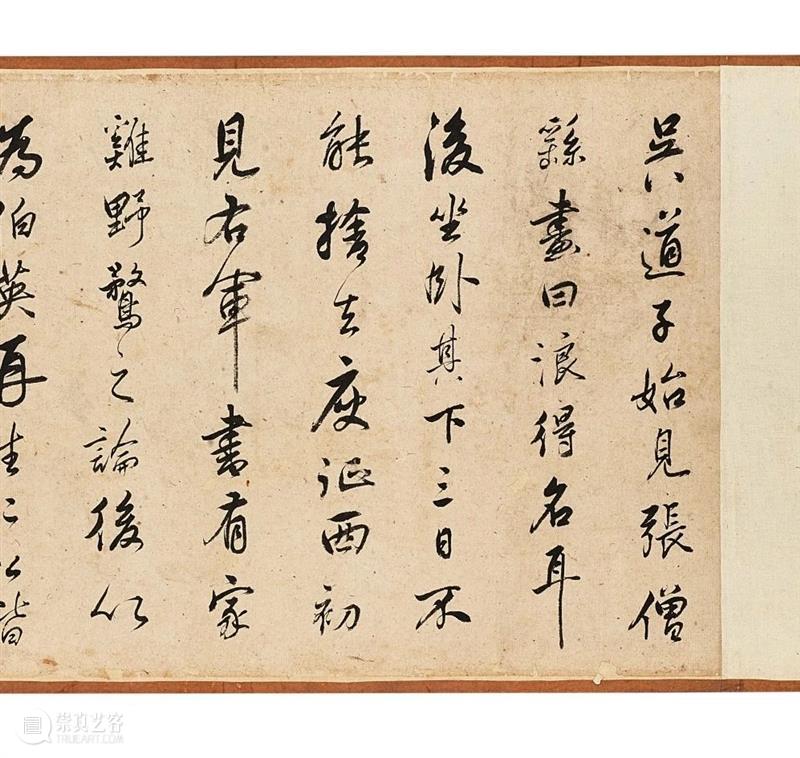 吳道子始見張僧
繇畫曰浪得名耳
後坐卧其下三日不
能捨去庾征西初
見右軍書有家
雞野鶩之論後以
為伯英再生二公皆
崇真艺客
TRUEART.COM